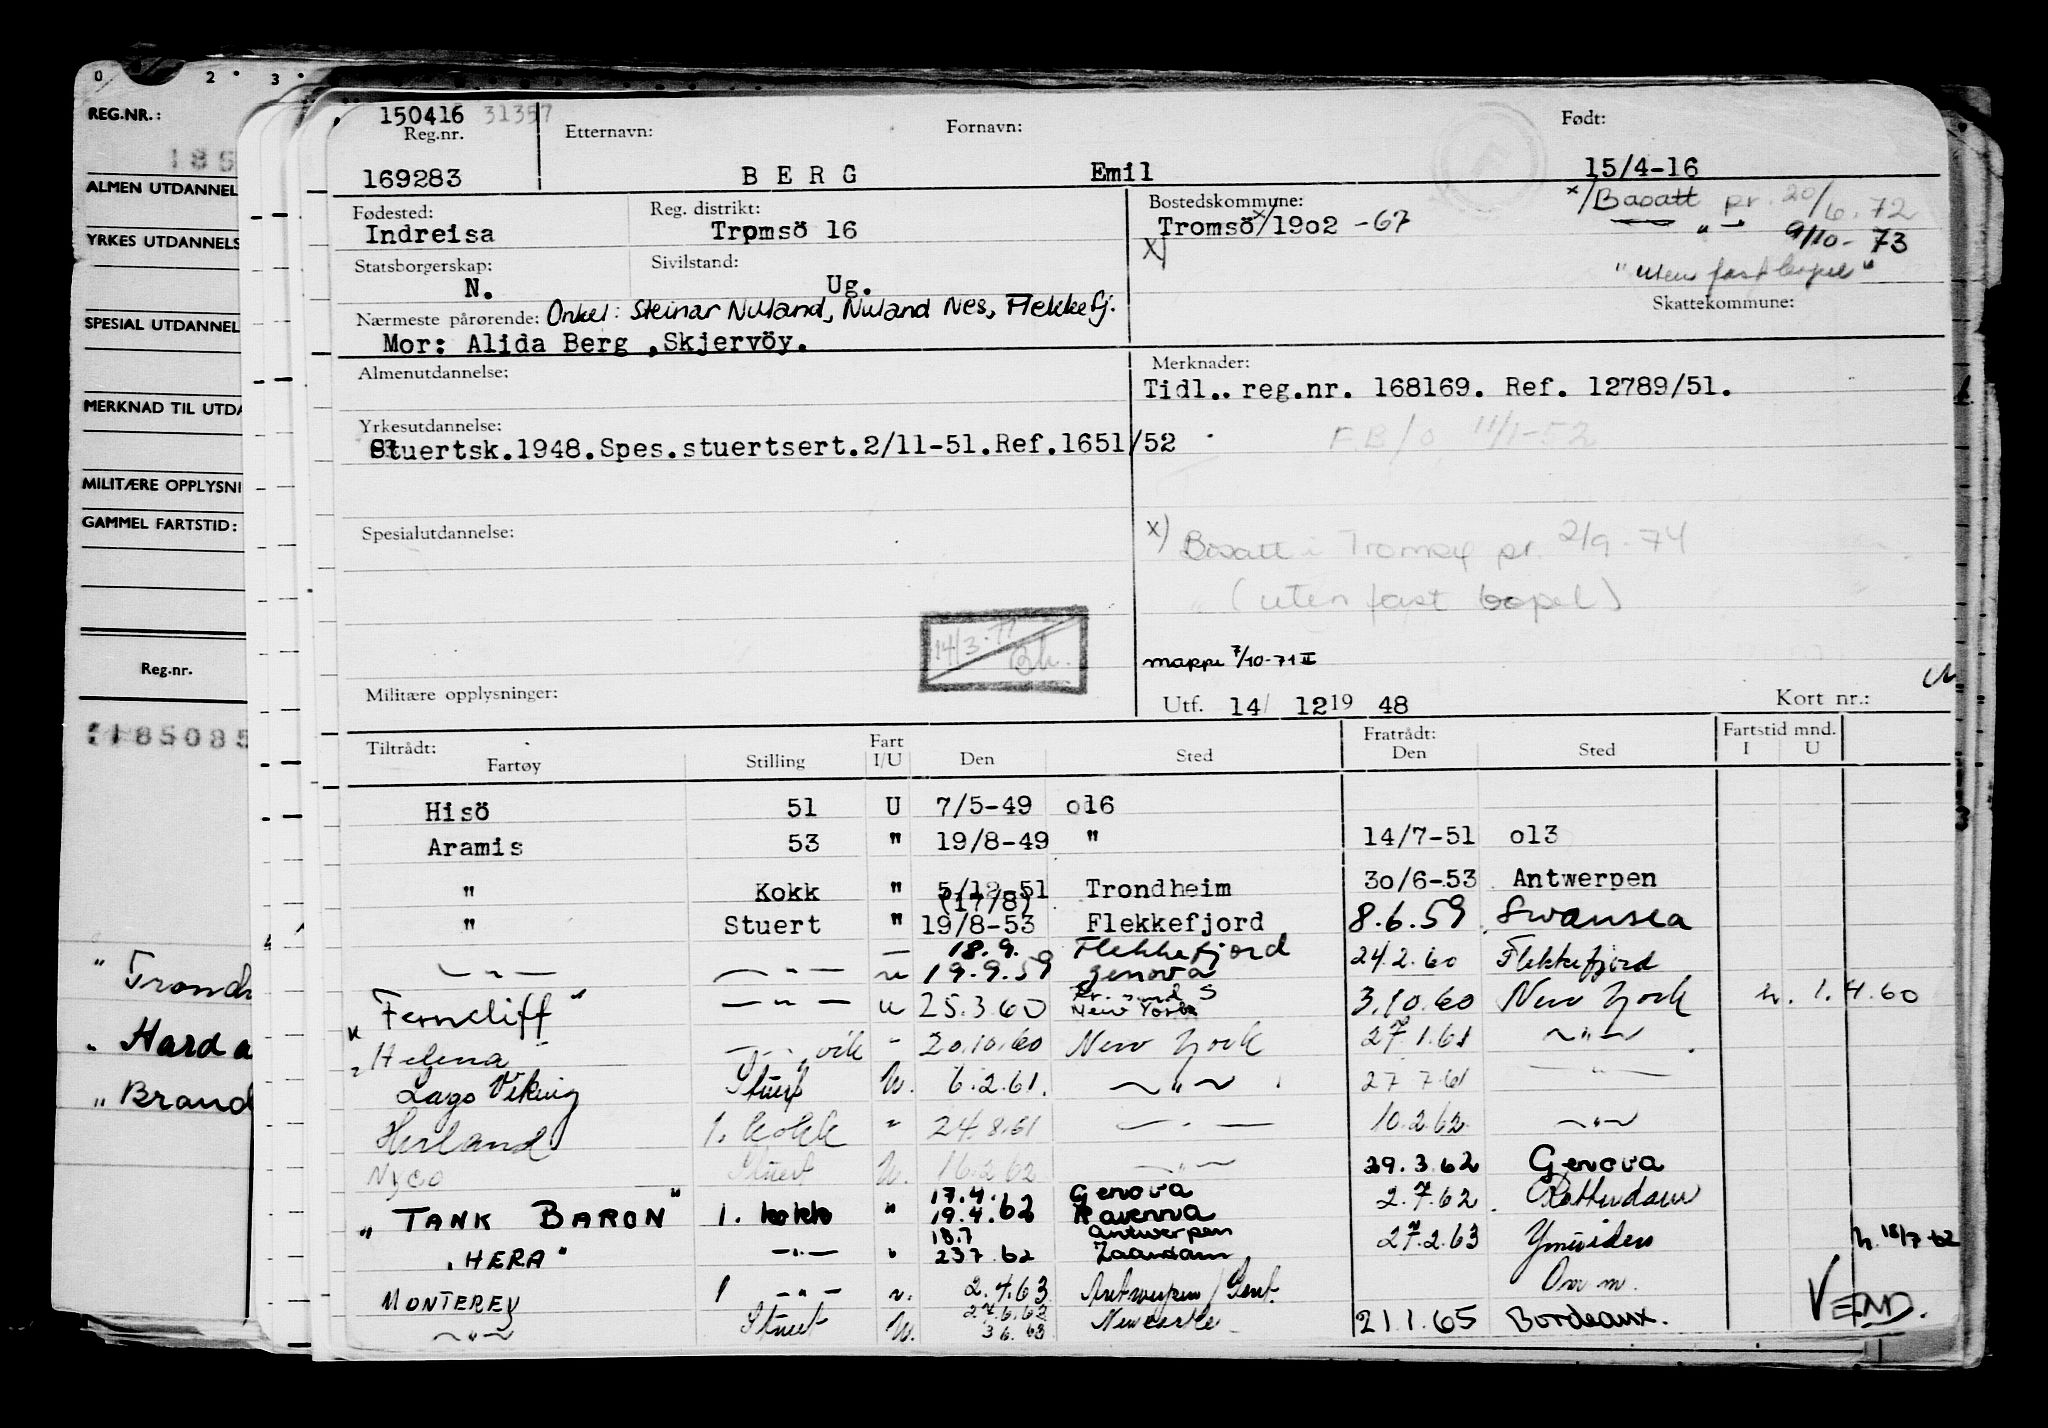 0 2 3
REG.NR.:
185
ALMEN UTDANNEL
YRKES UTDANNELS
SPESIAL UTDANNEL
MERKNAD TIL UTDA
MILITÆRE OPPLYSNI
GAMMEL FARTSTID:
Reg.nr.
185085
" Trondh
Hard a
" Brand
150416 31357
Reg.nr. Etternavn: Fornavn: Født:
169283 BERG Emil 15/4-16
Fødested: Reg. distrikt: Bostedskommune: x/ Bosatt pr. 20/6.72
Indreisa Tromsö 16 Tromsö x/1902 -67 " - 9/10-73
x)
Statsborgerskap: Sivilstand: "uten fast bopel"
N. Ug. Skattekommune:
Nærmeste pårørende: Onkel: Steinar Nuland, Nuland Nes, Flekkefj.
Mor: Alida Berg ,Skjervöy.
Almenutdannelse: Merknader:
Tidl.. reg.nr. 168169. Ref. 12789/51.
Yrkesutdannelse: F.B/O 11/1-52
Stuertsk.1948.Spes.stuertsert.2/11-51.Ref.1651/52
Spesialutdannelse: x) Bosatt i Tromsø pr. 2/9-74
(uten fast bopel)
14/3-77
mappe 7/10-71 II
Militære opplysninger: Utf. 14/ 12 19 48 Kort nr.:
Tiltrådt: Fart Fratrådt: Fartstid mnd.
Fartøy Stilling I/U Den Sted Den Sted I U
Hisö 51 U 7/5-49 o16
Aramis 53 " 19/8-49 " 14/7-51 o13
" Kokk " 5/12-51 Trondheim 30/6-53 Antwerpen
(17/8)
" Stuert " 19/8-53 Flekkefjord 8.6.59 Swansea
18.9. Flekkefjord
— " — — " — u 19.9.59 Genova 24.2.60 Flekkefjord
Ferncliff" — " — u 25.3.60 Kr.sund S New York 3.10.60 New York h. 1.4.60
Helena 20.10.60 New York 27.1.61 — " —
Lago Viking Stuert U. 6.2.61. — " — 27 7.61 — " —
Herland 1. kokk " 24.8.61 — " — 10.2.62 — " —
Nyco Stuert U. 16.2.62 — " — 29.3.62 Genova
17.4. Genova
" TANK BARON" 1. kokk " 19.4.62 Ravenna 2.7.62 Rotterdam
18.7 Antwerpen
"HERA" — " — " 23.7.62 Zaandam 27.2.63 Ymuiden h. 18/7-62
MONTEREY 1 — " — u. 2.4.63 Antwerpen / Gent. Om m.
— " — Stuert U. 3 6. 63 Newcastle 21.1.65 Bordeaux. VEND.